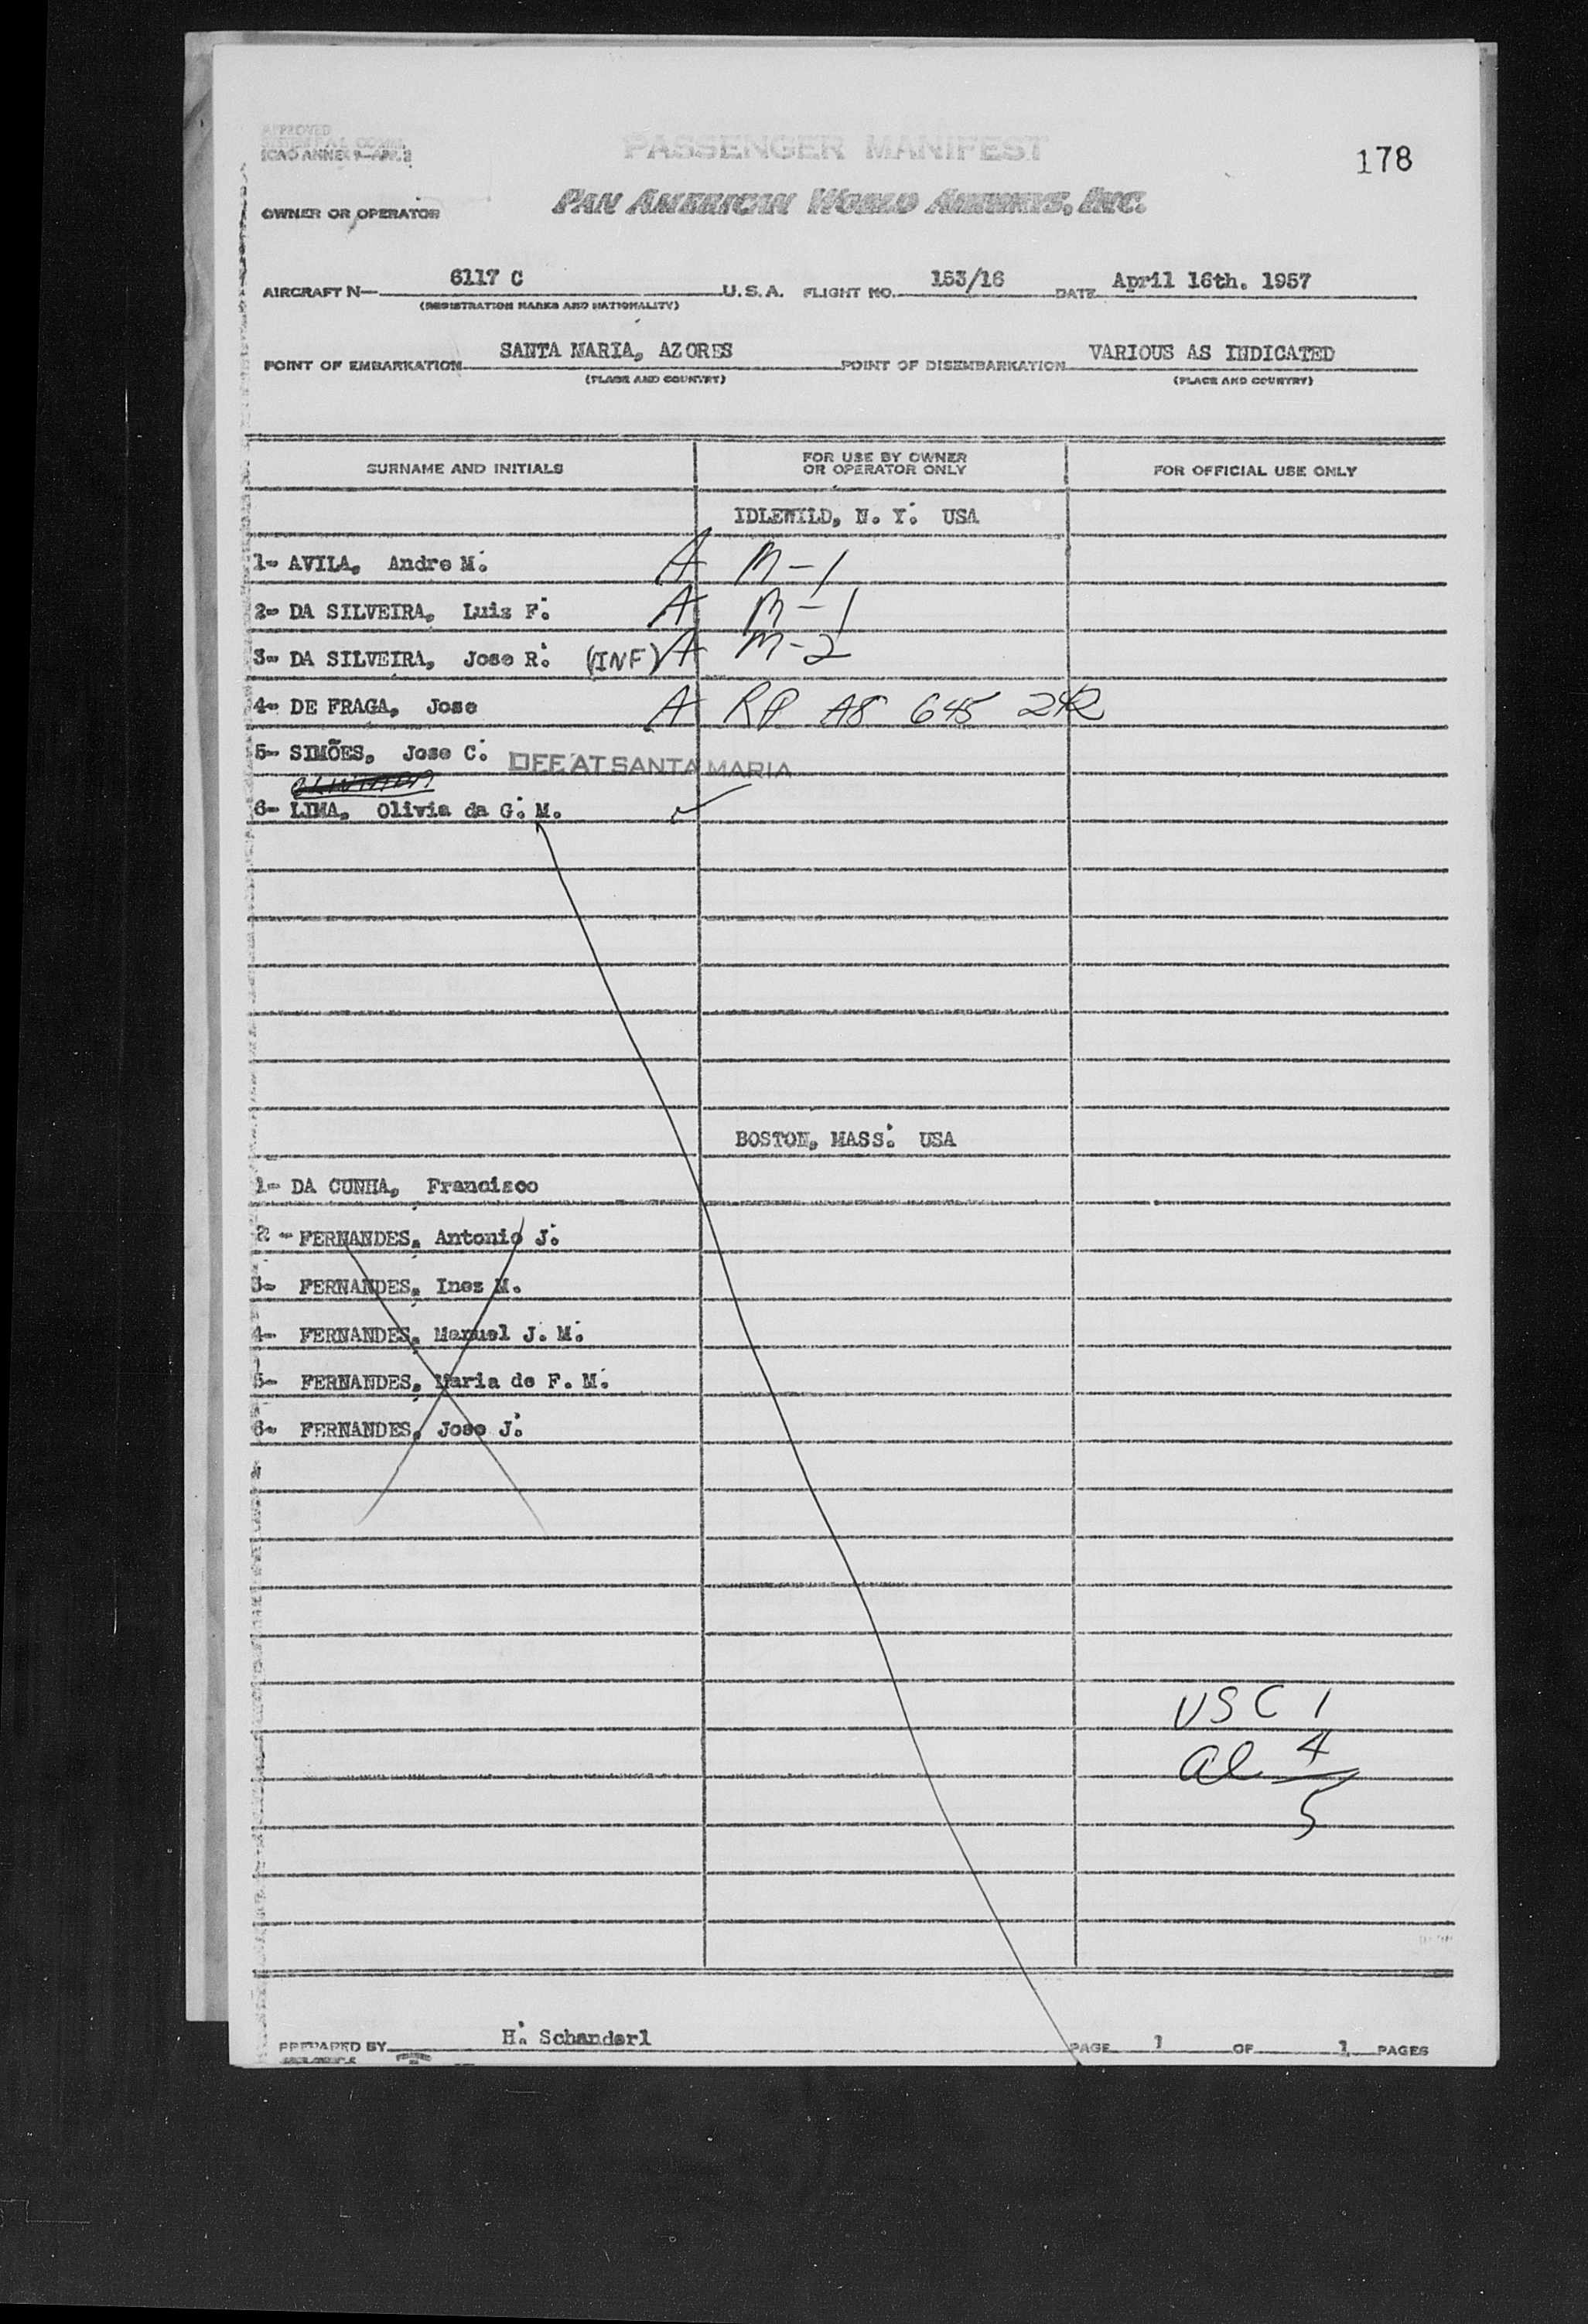 APPROVED
ICAO ANNEX 9—APP. 3
PASSENGER MANIFEST
178
OWNER OR OPERATOR PAN AMERICAN WORLD AIRWAYS, INC.
AIRCRAFT N— 6117 C U.S.A. FLIGHT NO. 153/16 DATE April 16th. 1957
(REGISTRATION MARKS AND NATIONALITY)
POINT OF EMBARKATION SANTA MARIA, AZORES POINT OF DISEMBARKATION VARIOUS AS INDICATED
(PLACE AND COUNTRY) (PLACE AND COUNTRY)
SURNAME AND INITIALS FOR USE BY OWNER OR OPERATOR ONLY FOR OFFICIAL USE ONLY
IDLEWILD, N. Y. USA
1- AVILA, Andre M. A M-1
2- DA SILVEIRA, Luis F. A M-1
3- DA SILVEIRA, Jose R. (INF) A M-2
4- DE FRAGA, Jose A RP A8 645 242
5- SIMÕES, Jose C. OFF AT SANTA MARIA
6- LIMA, Olivia da G. M. ✓
BOSTON, MASS. USA
1- DA CUNHA, Francisco
2- FERNANDES, Antonio J.
3- FERNANDES, Inez M.
4- FERNANDES, Manuel J. M.
5- FERNANDES, Maria de F. M.
6- FERNANDES, Jose J.
USC 1
al 4
5
PREPARED BY H. Schanderl PAGE 1 OF 1 PAGES